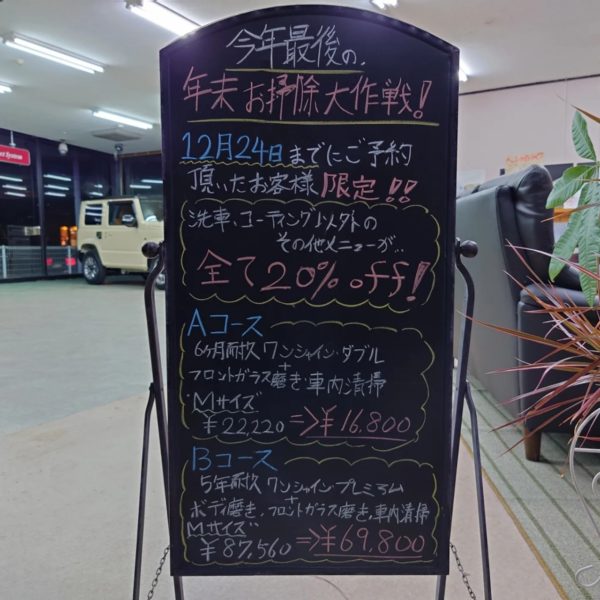 今年最後の、
年末お掃除大作戦!
12月24日までにご予約
頂いたお客様限定!!
洗車、コーティング以外の
その他メニューが、、
全て20%off!
Aコース
6ヶ月耐久ワンシャイン・ダブル
+
フロントガラス磨き・車内清掃
Mサイズ
¥22,220⇒¥16,800
Bコース
5年耐久ワンシャイン・プレミアム
+
ボディ磨き・フロントガラス磨き・車内清掃
Mサイズ
¥87,560⇒¥69,800